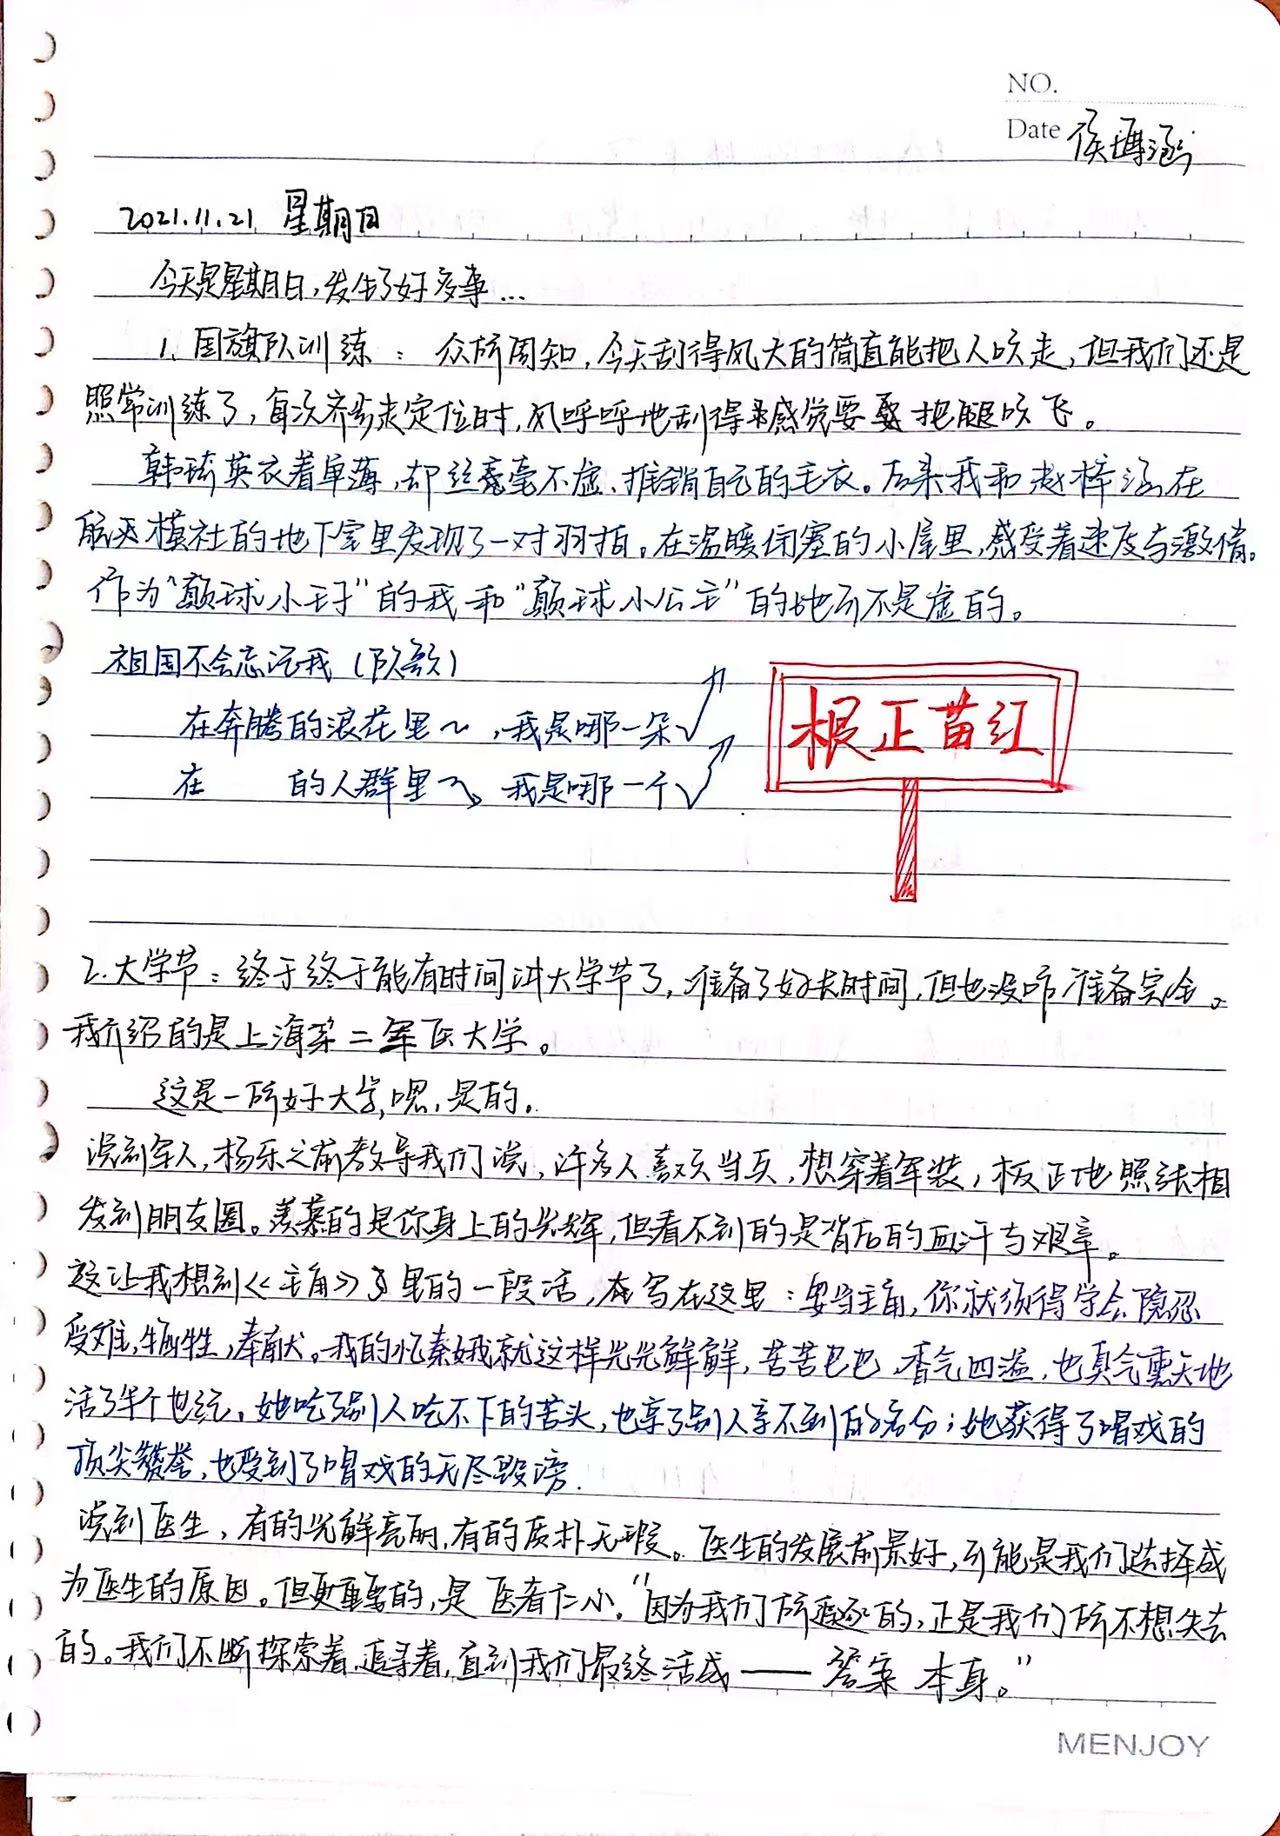 NO.
Date 侯博涵
2021.11.21 星期日
今天是星期日,发生了好多事...
1. 国旗队训练: 众所周知,今天刮得风大的简直能把人吹走,但我们还是
照常训练了,每次齐步走定位时,风呼呼地刮得感觉要把腿吹飞。
韩琦英衣着单薄,却丝毫不虚、推销自己的毛衣。后来我和赵梓涵在
航天模社的地下室里发现了一对羽拍。在温暖闭塞的小屋里,感受着速度与激情。
作为“颠球小王子”的我和“颠球小公主”的她可不是虚的。
祖国不会忘记我(队歌)
在奔腾的浪花里~,我是哪一朵
在 的人群里~,我是哪一个
根正苗红
2.大学节:终于终于能有时间讲大学节了,准备了好长时间,但也没咋准备完全。
我介绍的是上海第二军医大学。
这是一所好大学,嗯,是的。
说到军人,杨乐之前教导我们说,许多人喜欢当兵,想穿着军装,板正地照张相
发到朋友圈。羡慕的是你身上的光辉,但看不到的是背后的血汗与艰辛。
这让我想到《主角》里的一段话,写在这里:要当主角,你就须得学会隐忍
受难,牺牲,奉献。我的忆秦娥就这样光光鲜鲜,苦苦巴巴,香气四溢,也臭气熏天地
活了半个世纪。她吃了别人吃不下的苦头,也享了别人享不到的名分;她获得了唱戏的
顶尖赞誉,也受到了唱戏的无尽毁谤.
说到医生,有的光鲜亮丽,有的质朴无瑕。医生的发展前景好,可能是我们选择成
为医生的原因。但更重要的,是医者仁心。“因为我们所追逐的,正是我们所不想失去
的。我们不断探索着,追寻着,直到我们最终活成——答案 本身。”
MENJOY